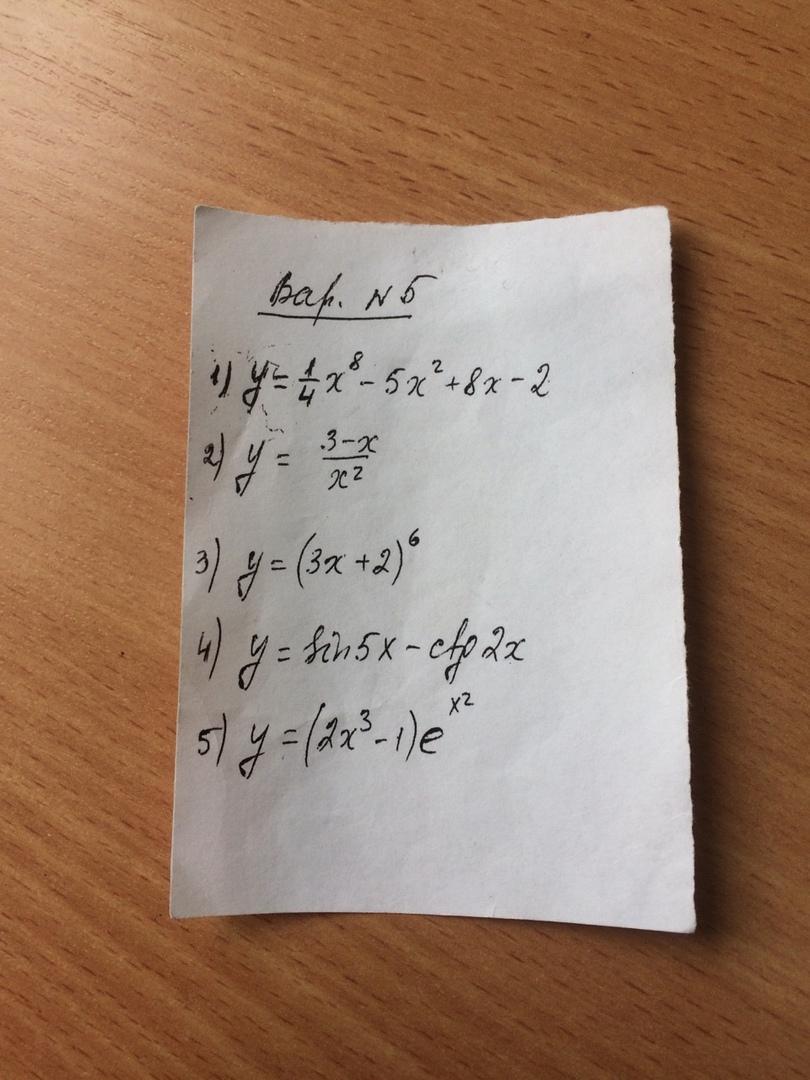 Вар. №5
1) y = 1/4 x⁸ - 5x² + 8x - 2
2) y = 3-x/x²
3) y = (3x + 2)⁶
4) y = sin5x - ctg2x
5) y = (2x³ - 1)e^x²